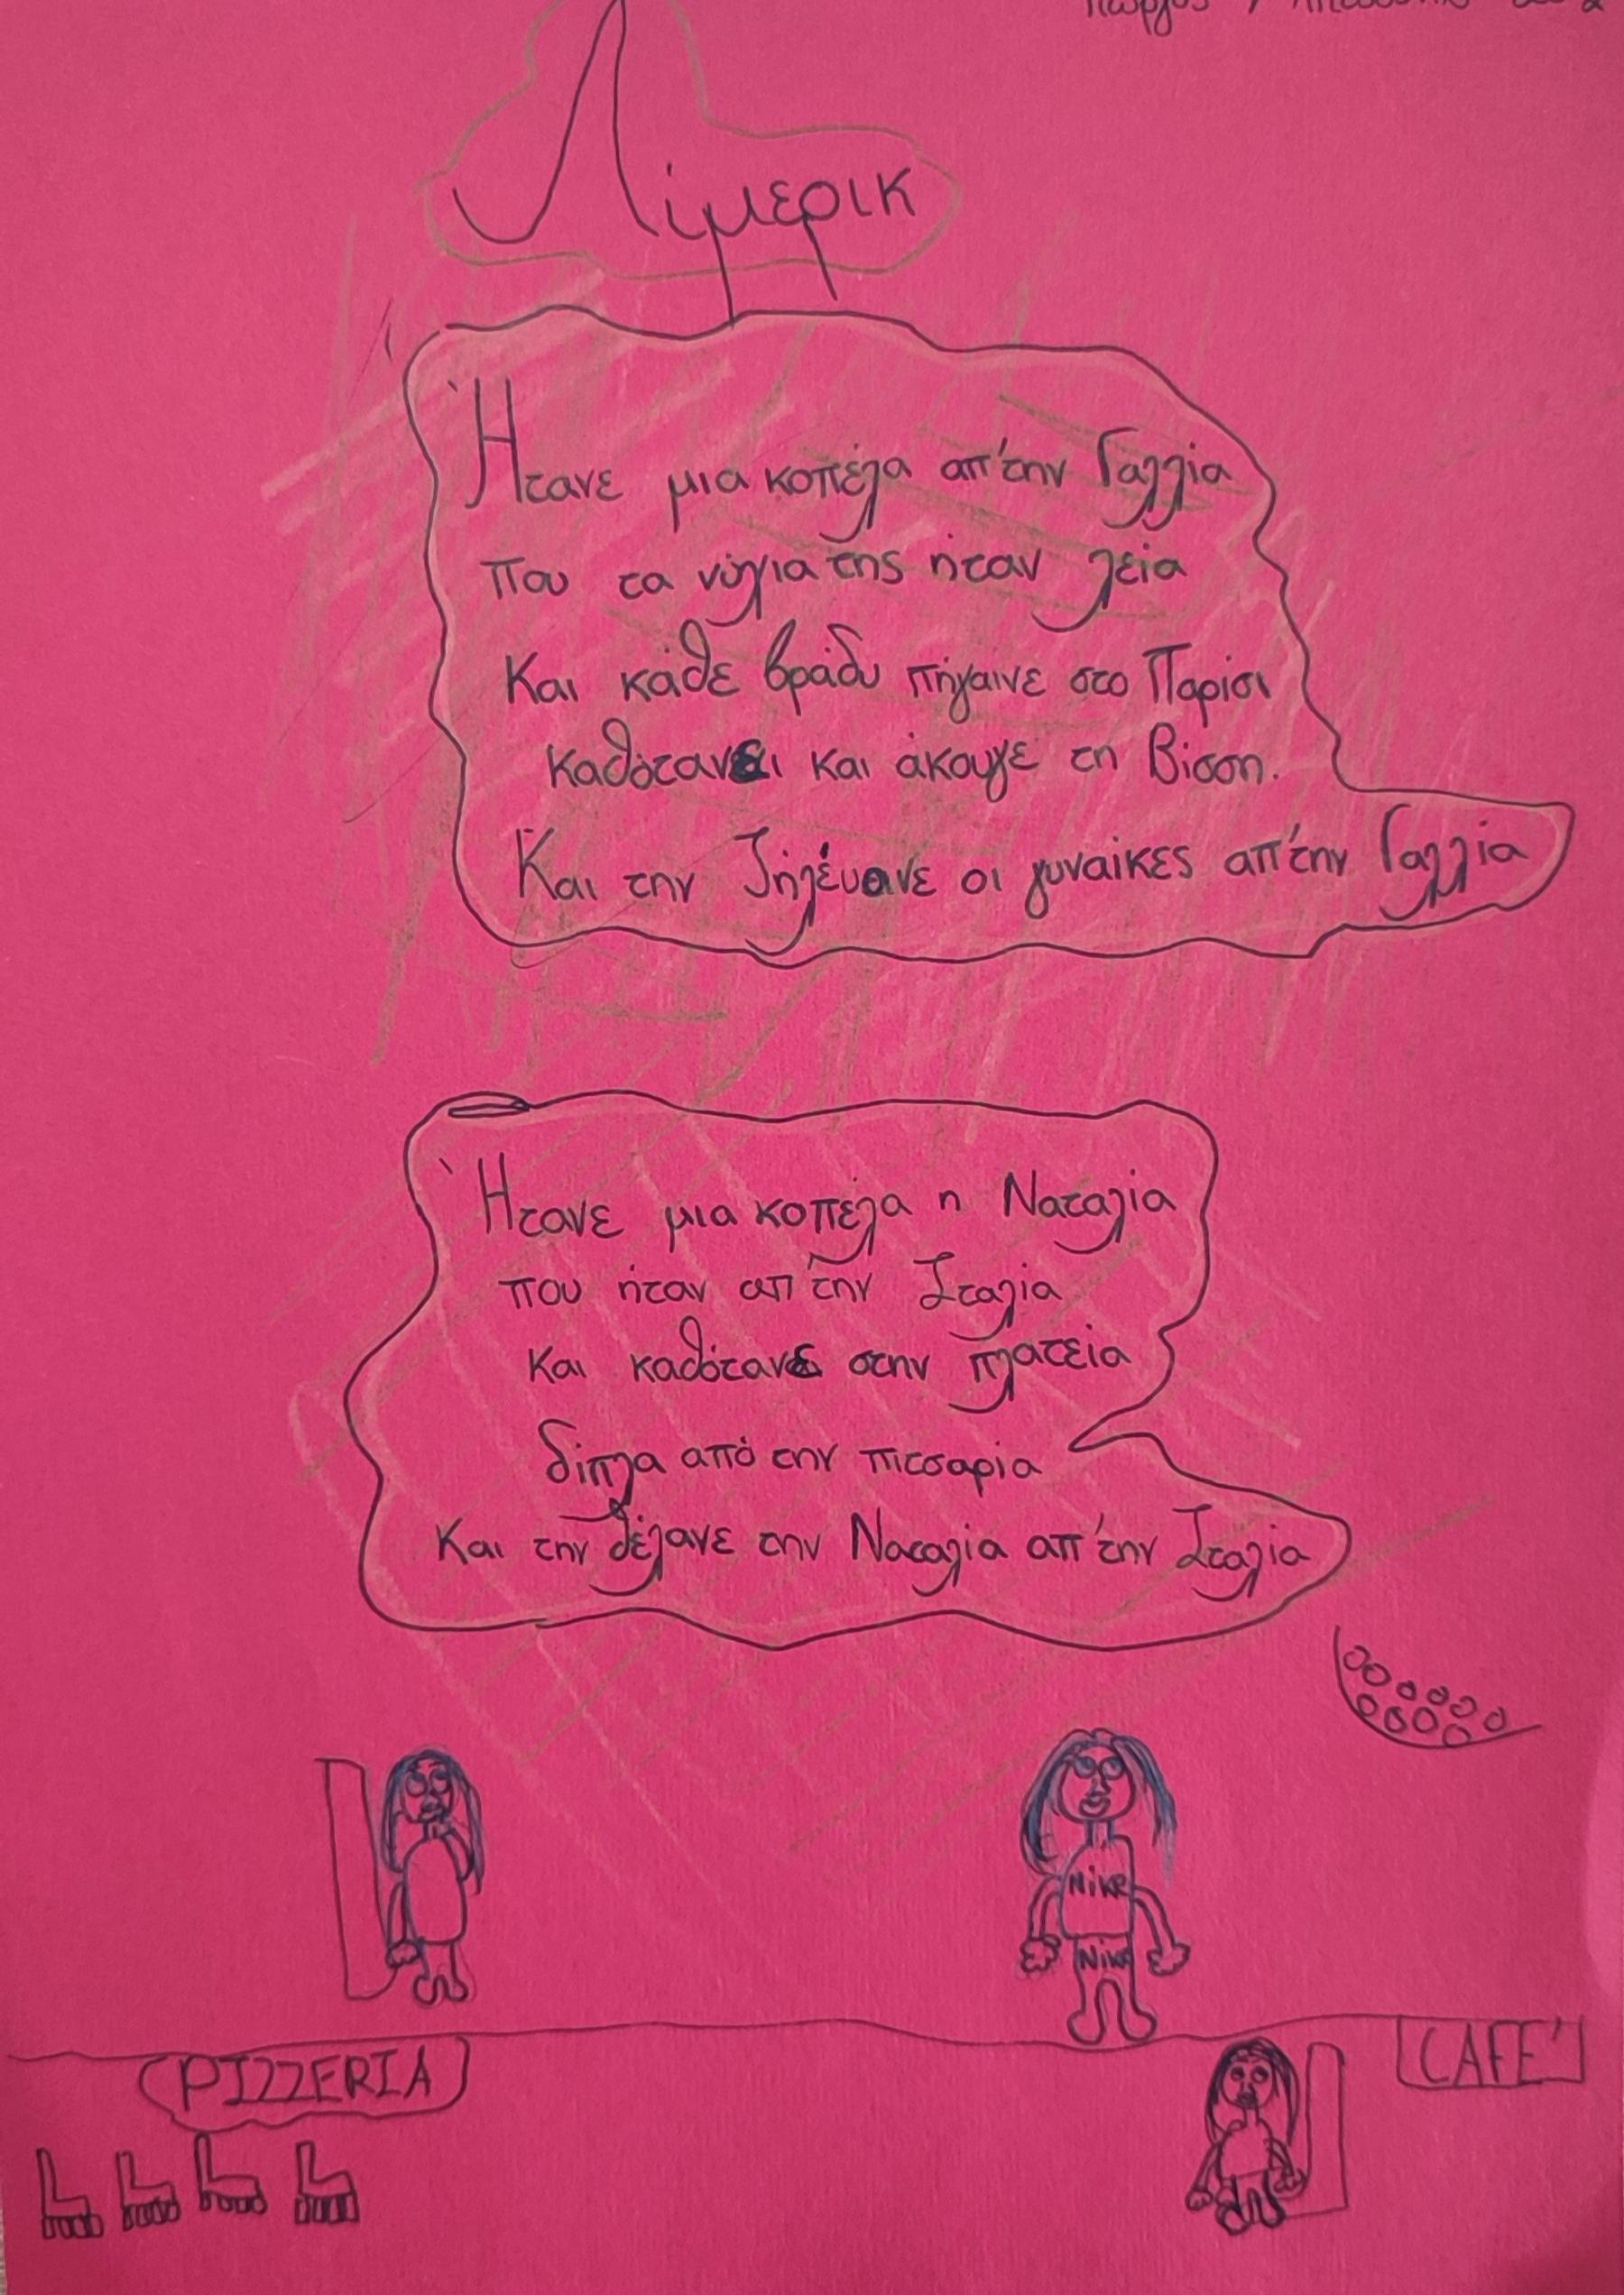 Γιώργος
Λίμερικ
Ήτανε μια κοπέλα απ'την Γαλλία
που τα νύχια της ήταν λεία
Και κάθε βράδυ πήγαινε στο Παρίσι
καθότανε και άκουγε τη Βίσση.
Και την ζηλέυανε οι γυναίκες απ'την Γαλλία
Ήτανε μια κοπέλα η Ναταλία
που ήταν απ'την Ιταλία
και καθότανε στην πλατεία
δίπλα από την πιτσαρία
Και την θέλανε την Ναταλία απ'την Ιταλία
Nike
Nike
PIZZERIA
CAFE'